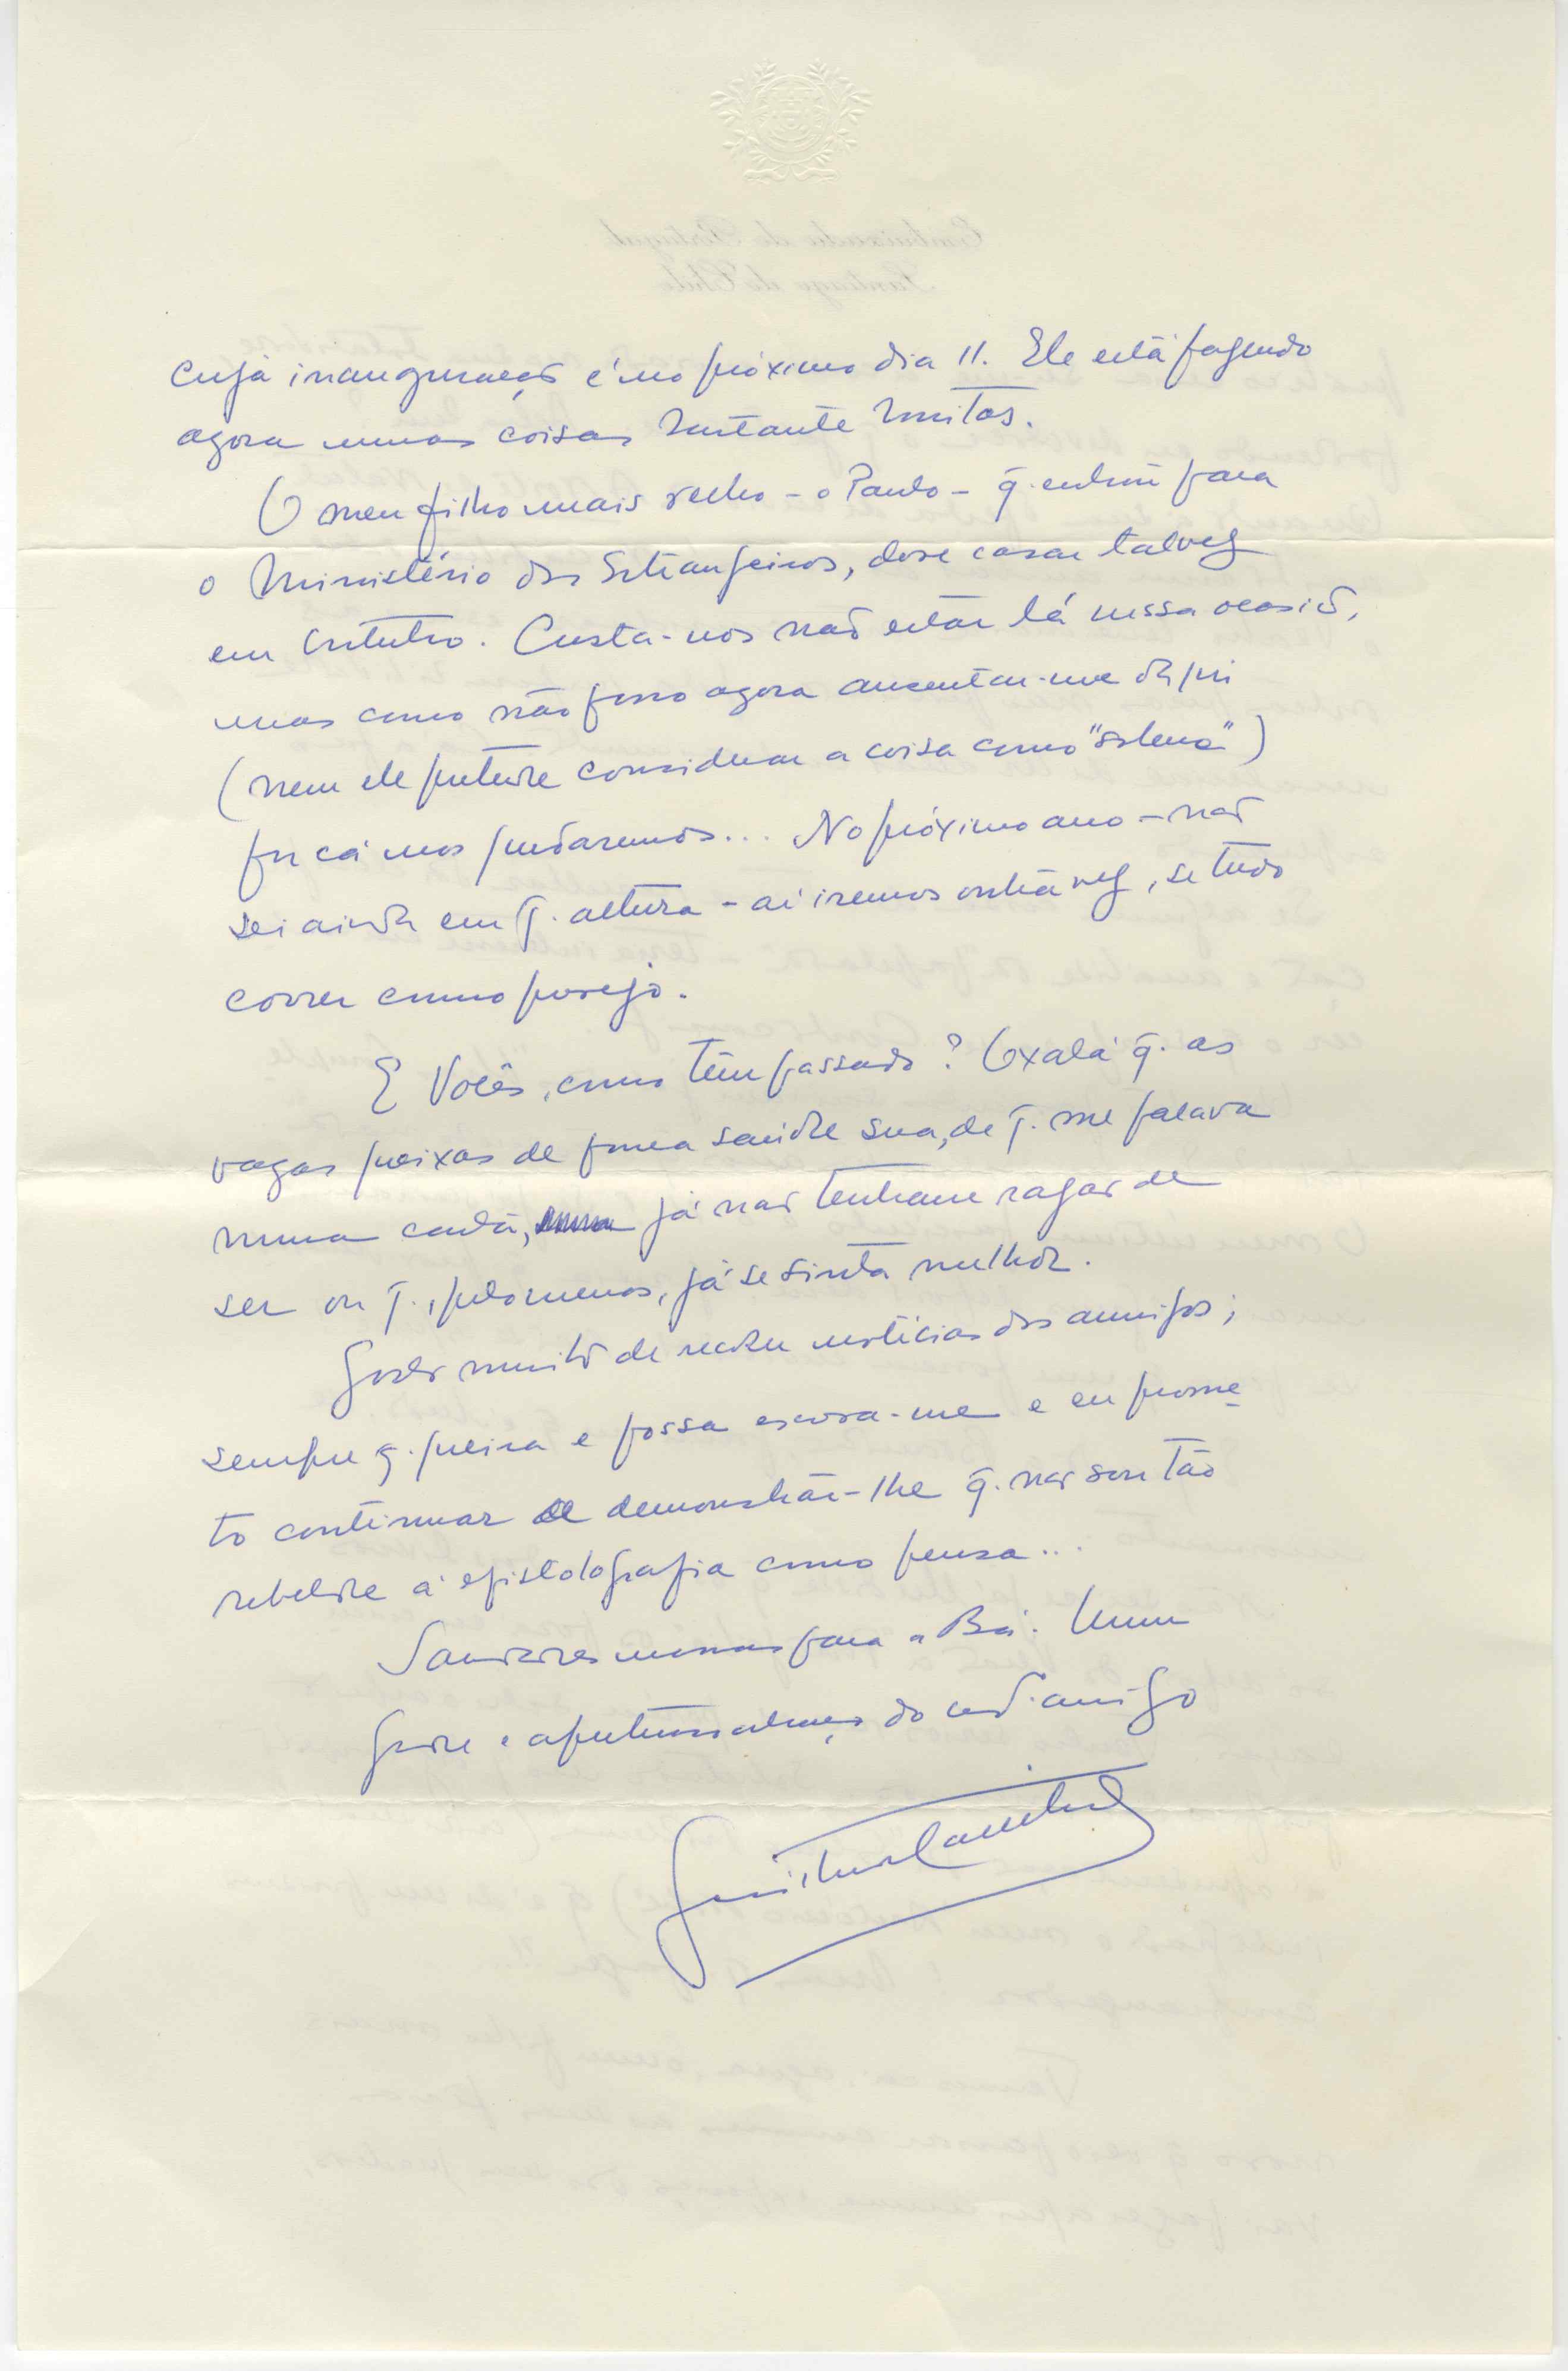 Embaixada de Portugal
Santiago do Chile
cuja inauguração é no próximo dia 11. Ele está fazendo
agora umas coisas bastante bonitas.
O meu filho mais velho - o Paulo - q. entrou para
o Ministério dos Estrangeiros, deve casar talvez
em Outubro. Custa-nos não estar lá nessa ocasião,
mas como não posso agora ausentar-me daqui
(nem ele pretende considerar a coisa como "solene")
por cá nos quedaremos... No próximo ano - não
sei ainda em q. altura - aí iremos outra vez, se tudo
correr como desejo.
E Vocês, como têm passado? Oxalá q. as
vagas queixas de pouca saúde sua, de q. me falava
numa carta, já não tenham razão de
ser ou q., pelo menos, já se sinta melhor.
Gosto muito de receber notícias dos amigos;
sempre q. queira e possa escreva-me e eu prome
to continuar a demonstrar-lhe q. não sou tão
rebelde à epistolografia como pensa...
Saudades nossas para a Bá. Um
grande e afectuoso abraço do amigo